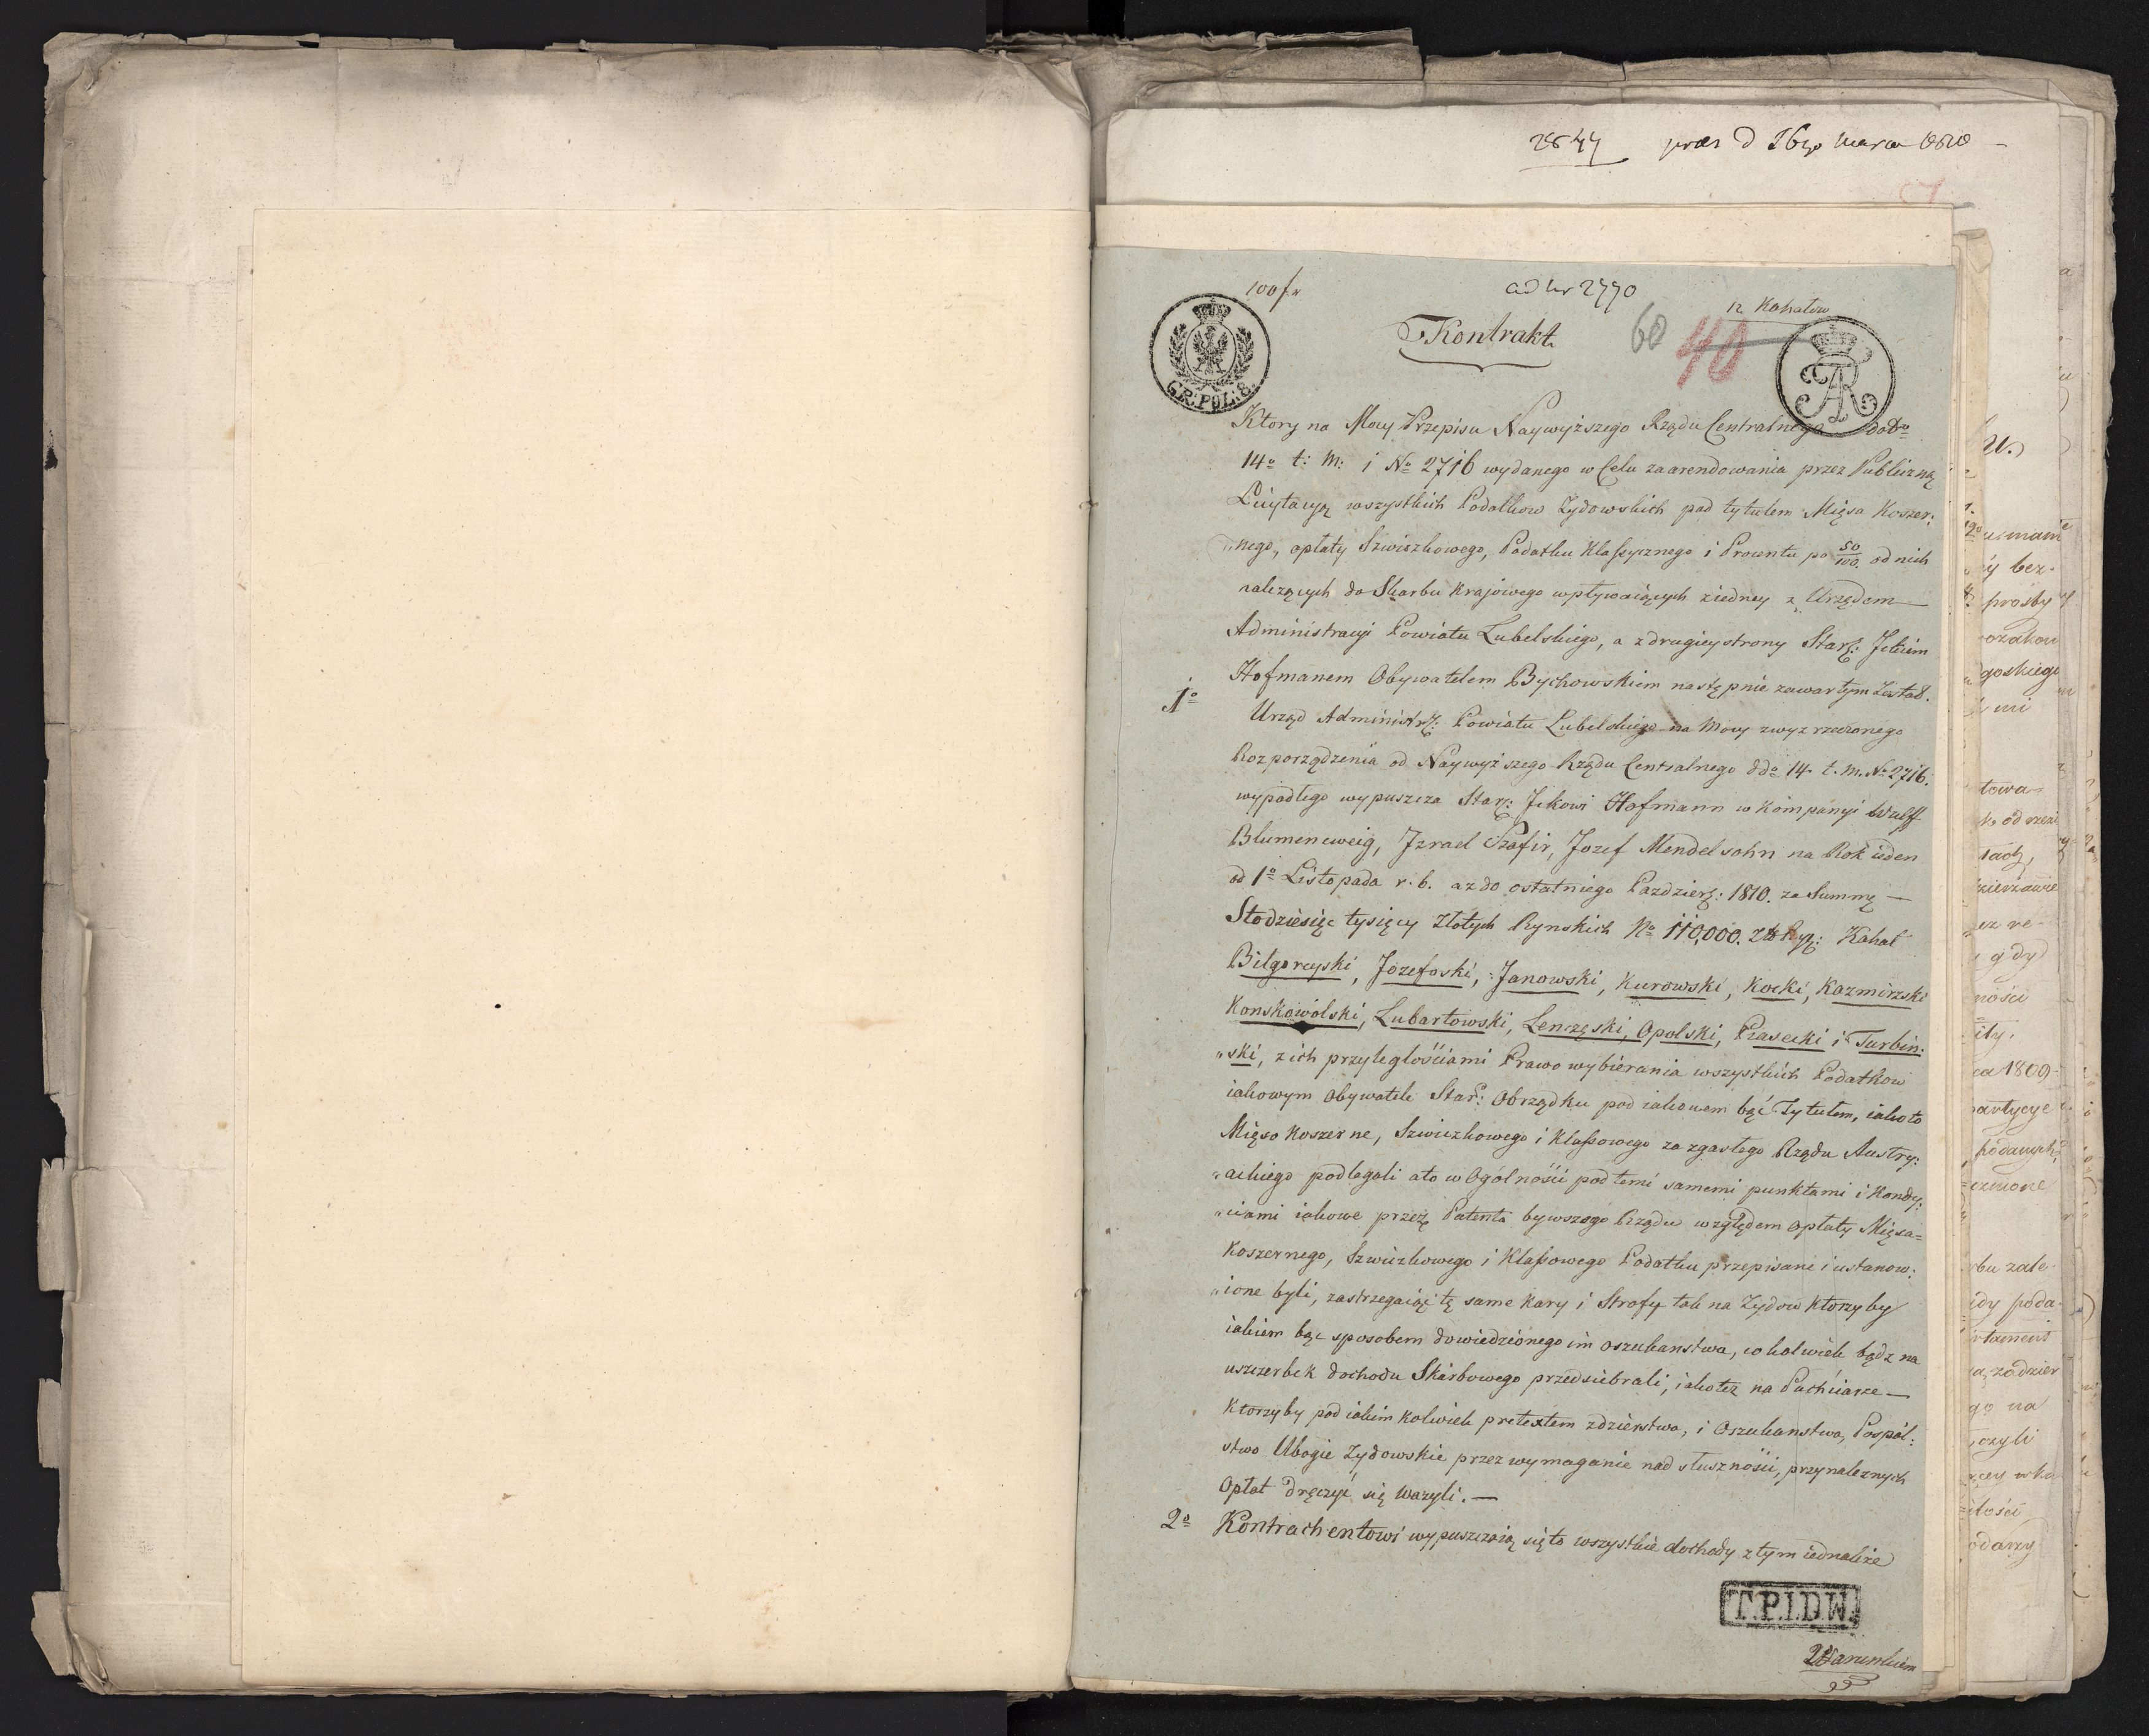 2847 præs d 16go Marca 1810
100 f
ad Nr 2770
12 Kahałow
Kontrakt
60 40
G.R: POL: 8.
Ktory na Mocy Przepisu Naywyższego Rządu Centralnego ddo
14o t: m: i No 2716 wydanego w Celu zaarendowania przez Publiczną
Licytacyą wszystkich Podatkow Zydowskich pod tytułem Mięsa Koszer:
„nego, opłaty Szwiczkowego, Podatku Klassycznego i Procentu po 50/100. od nich
należących do Skarbu Krajowego wpływaiących ziedney z Urzędem
Administracyi Powiatu Lubelskiego, a zdrugiey strony Star:
Hofmanem Obywatelem Bychowskiem następnie zawartym został.
1o Urząd Administr: Powiatu Lubelskiego na Mocy zwyz rzeczonego
Rozporządzenia od Naywyższego Rządu Centralnego ddo 14. t. m. No 2716.
wypadłego wypuszcza Star: Jckowi Hofmann w Kompanyi Wulff
Blumencweig, Jzrael Szafir, Jozef Mendelsohn na Rok ieden
od 1o Listopada r. b. az do ostatniego Pazdzier: 1810. za Summę —
Stodziesięc tysięcy Złotych Rynskich No 110,000. Zło Ryn: Kahał
Bilgorayski, Jozefoski, Janowski, Kurowski, Kocki, Kazmirzski
Konskowolski, Lubartowski, Lenczęski, Opolski, Piasecki i Turbin:
„ski, z ich przyległościami Prawo wybierania wszystkich Podatkow
iakowym Obywatele Star: Obrządku pod iakowem bąć Tytułem, iakoto
Mięso Koszerne, Szwiczkowego i Klassowego za zgasłego Rządu Austry:
„ackiego podlegali ato w Ogolności pod temi samemi punktami i Kondy:
„ciami iakowe przez Patenta bywszego Rządu względem opłaty Mięsa=
Koszernego, Szwiczkowego i Klassowego Podatku przepisane i ustanow:
„ione byli, zastrzegaiąc tę same Kary i Strofy tak na Zydow ktorzyby
iakiem bąc sposobem dowiedzionego im oszukanstwa, cokolwiek bądz na
uszczerbek dochodu Skarbowego przedsiebrali, iakotez na Pachciarze —
Ktorzyby pod iakim kolwiek pretextem zdzierstwa, i Oszukanstwa, Pospol:
stwo Ubogie Zydowskie przez wymaganie nad słuszności, przynaleznych
Opłat dręczyć się wazyli. —
2o Kontrachentowi wypuszczaią się to wszystkie dochody z tym iednakze
T.P.I.D.W.
Warunkiem